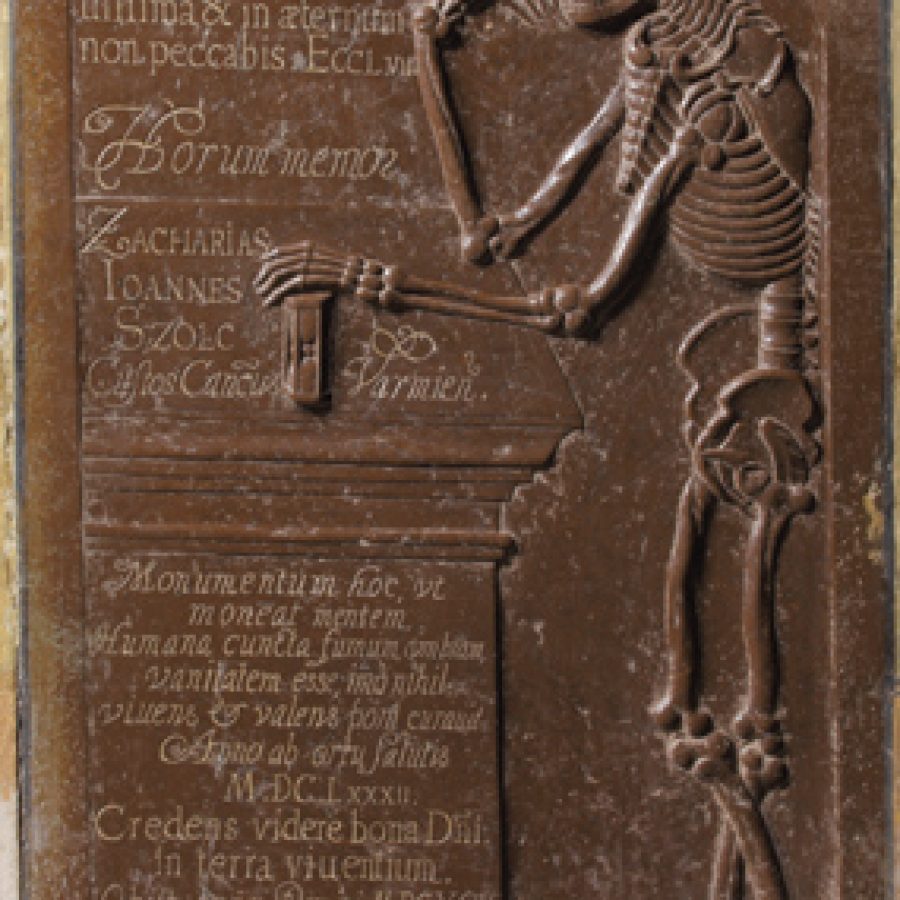 nissima & in æternum
non peccabis Eccl. vii
Horum memor
Zacharias
Ioannes
Szolc
Custos Canc̃us Varmien̉.
Monumentum hoc, vt
moneat mentem
Humana cuncta fumum, umbram
vanitatem esse, imo nihil
viuens & valens poni curauit
Anno ab ortu salutis
M.DC.Lxxxii.
Credens videre bona Dñi
in terra viuentium.